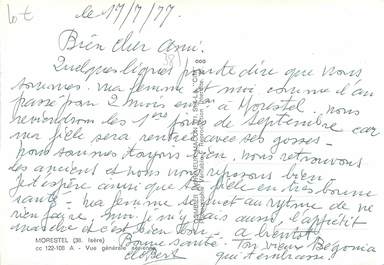 le 17/7/77
Bien cher ami.
Quelques lignes pour te dire que nous
sommes ma femme et moi comme l'an
passé pour 2 mois à Morestel. nous
reviendrons les 1ers jours de Septembre car
ma fille sera rentrée avec ses gosses -
nous sommes toujours bien, nous retrouvons
les anciens et nous nous reposons bien
J'espère aussi que ta fille en très bonne
santé - ma femme se met au rytme de ne
rien faire, moi je m'y fais aussi, l'appétit
marche et c'est bien bon. a bientôt
Bonne santé. Ton vieux Bégonia
qui t'embrasse
MORESTEL (38. Isère)
cc 122-108 A - Vue générale aérienne